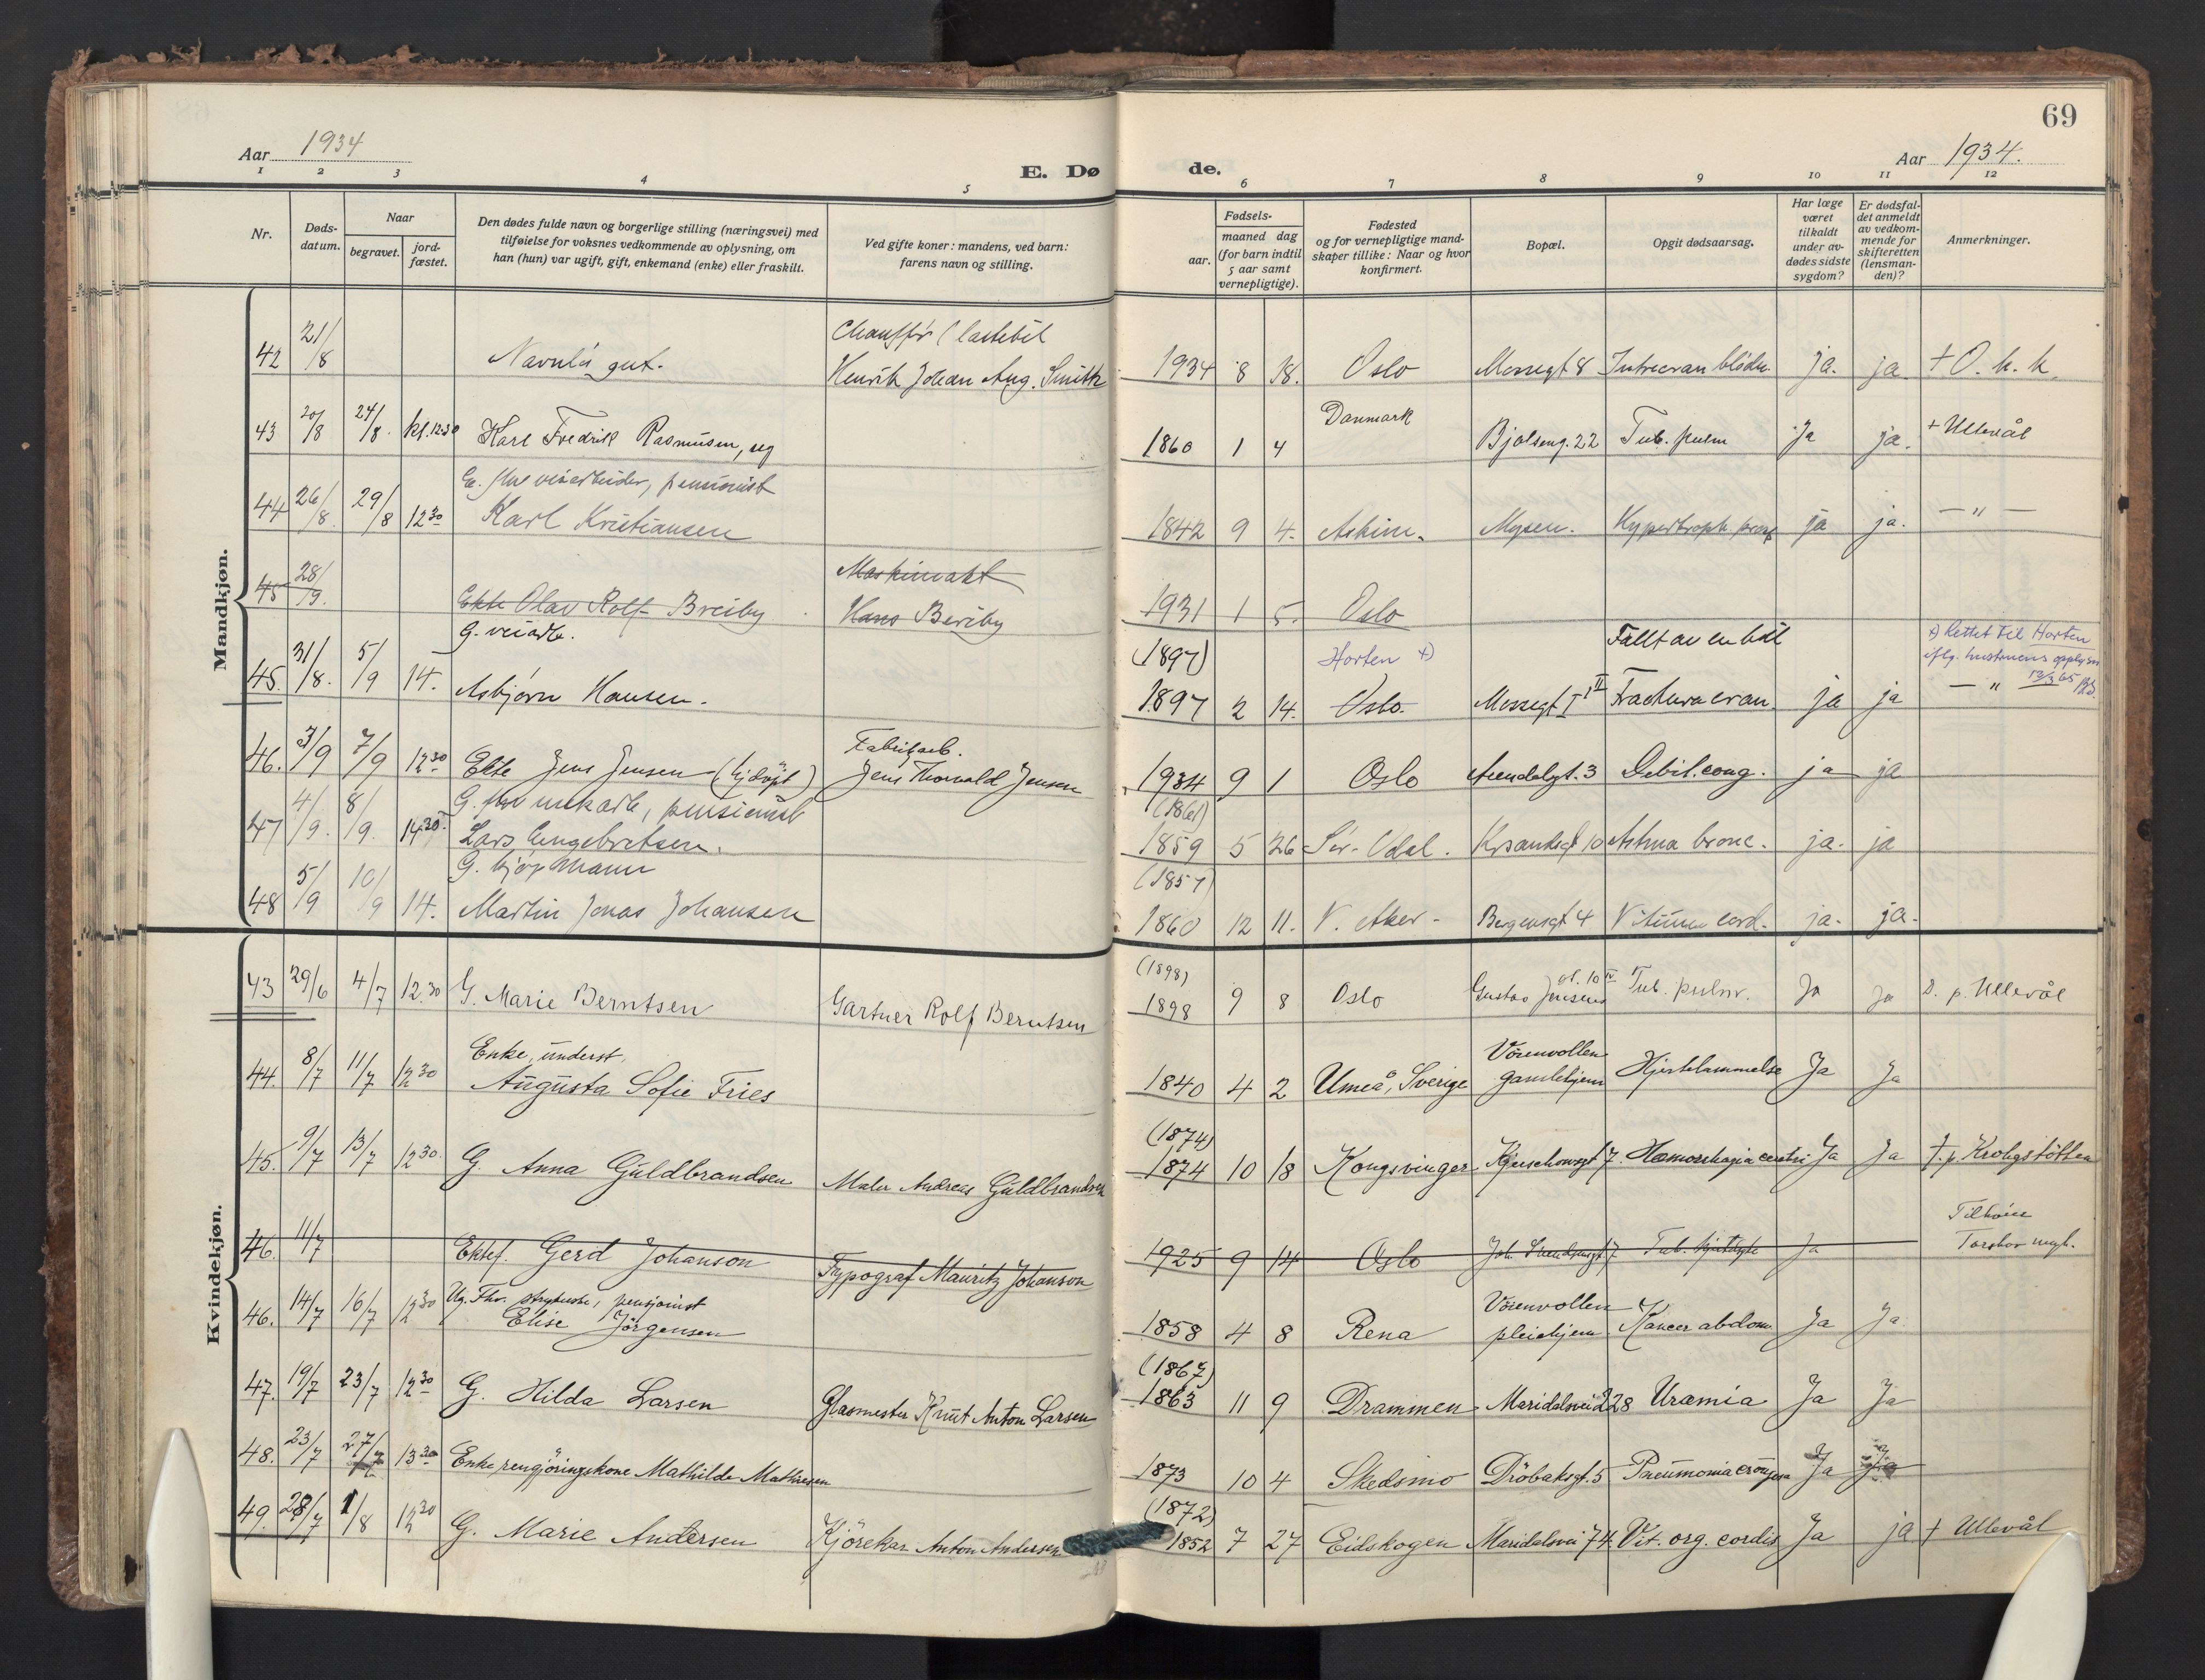 69
Aar 1934
E. Dø de.
Aar 1934.
1 2 3 4 5 6 7 8 9 10 11 12
Nr.
Døds-
datum.
Naar
begravet.
jord-
fæstet.
Den dødes fulde navn og borgerlige stilling (næringsvei) med
tilføielse for voksnes vedkommende av oplysning, om
han (hun) var ugift, gift, enkemand (enke) eller fraskilt.
Ved gifte koner: mandens, ved barn:
farens navn og stilling.
Fødsels-
aar.
maaned dag
(for barn indtil
5 aar samt
vernepligtige).
Fødested
og for vernepligtige mand-
skaper tillike: Naar og hvor
konfirmert.
Bopæl.
Opgit dødsaarsag.
Har læge
været
tilkaldt
under av-
dødes sidste
sygdom?
Er dødsfal-
det anmeldt
av vedkom-
mende for
skifteretten
(lensman-
den)?
Anmerkninger.
Mandkjøn.
Chauffør (lastebil
42 21/8 Navnløs gut. Henrik Johan Aug. Smith 1934 8 18. Oslo Mossegt 8 Intracran blødn. ja. ja + O. k. k.
Danmark
43 20/8 24/8. kl. 12 30 Karl Fredrik Rasmussen, ug 1860 1 4 Bjølseng. 22 Tub. pulm Ja ja. + Ullevål
pensionist
44 26/8. 29/8 12 30 Karl Kristiansen 1842 9 4. Askim. Mysen. Hypertroph. ja ja. — " —
Maskinvakt
45 28/9. Ekte Olav Rolf Breiby Hans Breiby 1931 1 5. Oslo
G. veiarb. (1897) Horten +) Fallt av en bil +) Rettet til Horten
iflg. hustruens opplysn
45. 31/8. 5/9 14. Asbjørn Hansen. 1897 2 14. Oslo. Mossegt Fractura cran. ja ja — " — 12/3 65
Fabrikarb.
46. 3/9 7/9 12 30 Ekte Jens Jensen (hjdøpt) Jens Thorvald Jensen 1934 9 1 Oslo Arendalsgt. 3 Debil. cong. ja ja
pensionist (1861)
47 4/9. 8/9. 14 30 Lars Engebretsen. 1859 5 26 Sør-Odal. Krsandsgt 10 Asthma bronc. ja. ja
G. kjøpmann (1857)
48 5/9 10/9 14. Martin Jonas Johansen 1860 12 11. V. Aker. Bergensgt 4 Vitium cord. ja. ja.
Kvindekjøn.
(1898) gt. 10 IV
43 29/6 4/7 12.30 G. Marie Berntsen Gartner Rolf Berntsen 1898 9 8 Oslo Gustav Jensens Tub. pulm. Ja Ja D. p. Ullevål
Enke, underst. Vøienvollen
44. 8/7 11/7 12 30 Augusta Sofie Fries 1840 4 2 Umeå, Sverige gamlehjem Hjertelammelse Ja Ja
(1874)
45. 9/7 13/7 12 30. G. Anna Guldbrandsen Maler Andreas Guldbrandsen 1874 10 18 Kongsvinger Kjerschowsgt 7. Hæmorrhagia cerebri Ja Ja †. p. Krohgstøtten
Tilhører
46. 11/7 Ektef. Gerd Johanson Typograf Mauritz Johanson 1925 9 14 Oslo Joh. Svendsensgt 7 Tub. Ja Torshov mgh.
Ug. Fhv. strykerske, pensjonist Vøienvollen
46. 14/7 16/7 12 30 Elise Jørgensen 1858 4 8 Rena pleiehjem Kancer abdom. Ja Ja.
(1867)
47. 19/7 23/7 12 30 G. Hilda Larsen Glasmester Knut Anton Larsen 1863 11 9 Drammen Maridalsvei 228 Uræmia Ja Ja
48. 23/7 27/7 13 30 Enke rengjøringskone Mathilde Mathiesen 1873 10 4 Skedsmo Drøbaksgt. 5 Pneumonia crouposa Ja Ja
(1872)
49. 28/7 1/8 12 30 G. Marie Andersen Kjørekar Anton Andersen 1852 7 27 Eidskogen Maridalsvei 74. Vit. org. cordis Ja ja + Ullevål